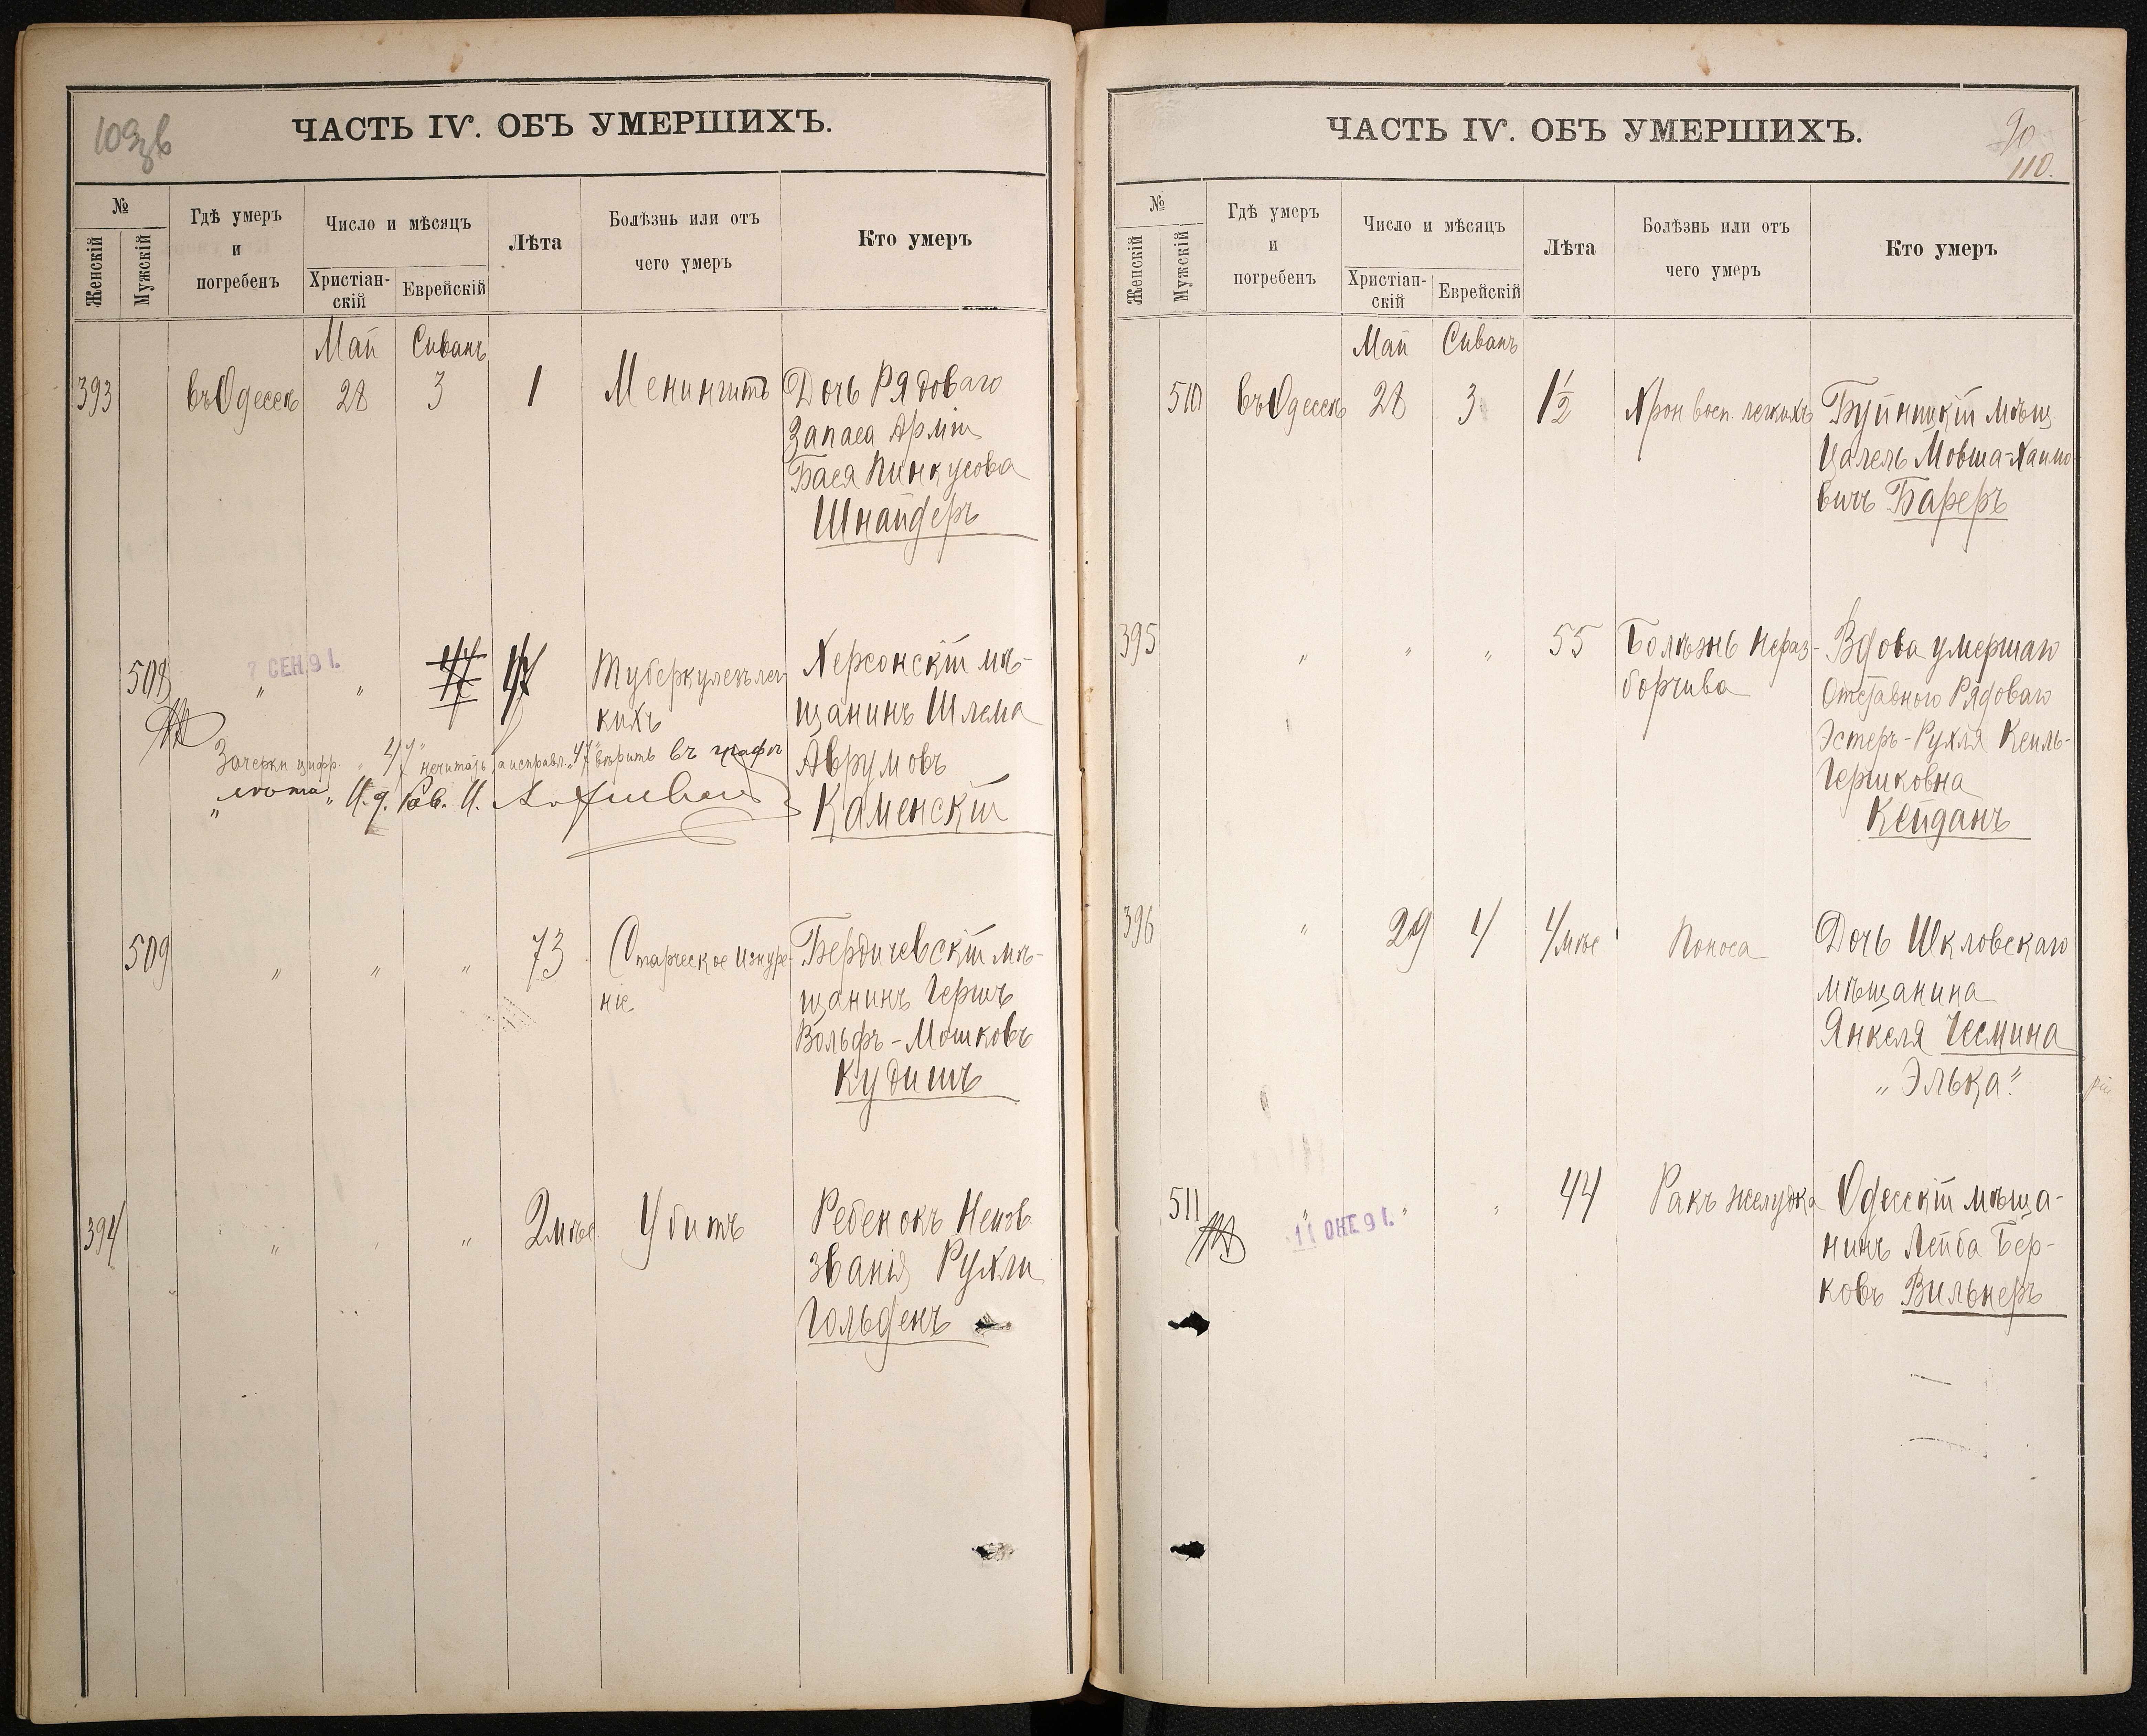 109 зв
ЧАСТЬ IV. ОБЪ УМЕРШИХЪ.
№
Женскій
Мужскій
Гдѣ умеръ
и
погребенъ
Число и мѣсяцъ
Христіан-
скій
Еврейскій
Лѣта
Болѣзнь или отъ
чего умеръ
Кто умеръ
Май Сиванъ
393 въ Одессѣ 28 3 1 Менингитъ Дочь Рядоваго
Запаса Арміи
Бася Пинкусова
Шнайдеръ
508 7 СЕН 91. " " 47 47 Туберкулезъ лег- Херсонскій мѣ-
кихъ щанинъ Шлема
Аврумовъ
Каменскій
Зачеркн цифр. "47" нечитать, а исправл. "47" вѣрить въ графѣ
"лѣта" И. д. Рав. И.
509 " " " 73 Старческое изнуре- Бердичевскій мѣ-
ніе щанинъ Гершъ
Вольфъ-Мошковъ
Кудишъ
394 " " " 2 мѣс. Убитъ Ребенокъ Неизв
званія Рухли
Гольденъ
90
110.
ЧАСТЬ IV. ОБЪ УМЕРШИХЪ.
№
Женскій
Мужскій
Гдѣ умеръ
и
погребенъ
Число и мѣсяцъ
Христіан-
скій
Еврейскій
Лѣта
Болѣзнь или отъ
чего умеръ
Кто умеръ
Май Сиванъ
510 въ Одессѣ 28 3 1½ Хрон. восп. легкихъ мѣщ.
Цалель Мовша-Хаимо-
вичъ Бареръ
395 " " " 55 Болѣзнь Нераз- Вдова умершаго
борчива Отставного Рядоваго
Эстеръ-Рухля Кеиль-
Гершковна
Кейданъ
396 " 29 4 4 мѣс Поноса Дочь Шкловскаго
мѣщанина
Янкеля Чесмина
"Элька"
511 " 11 ОКТ. 91. " " 44 Ракъ желудка Одесскій мѣща-
нинъ Лейба Бер-
ковъ Вильнеръ